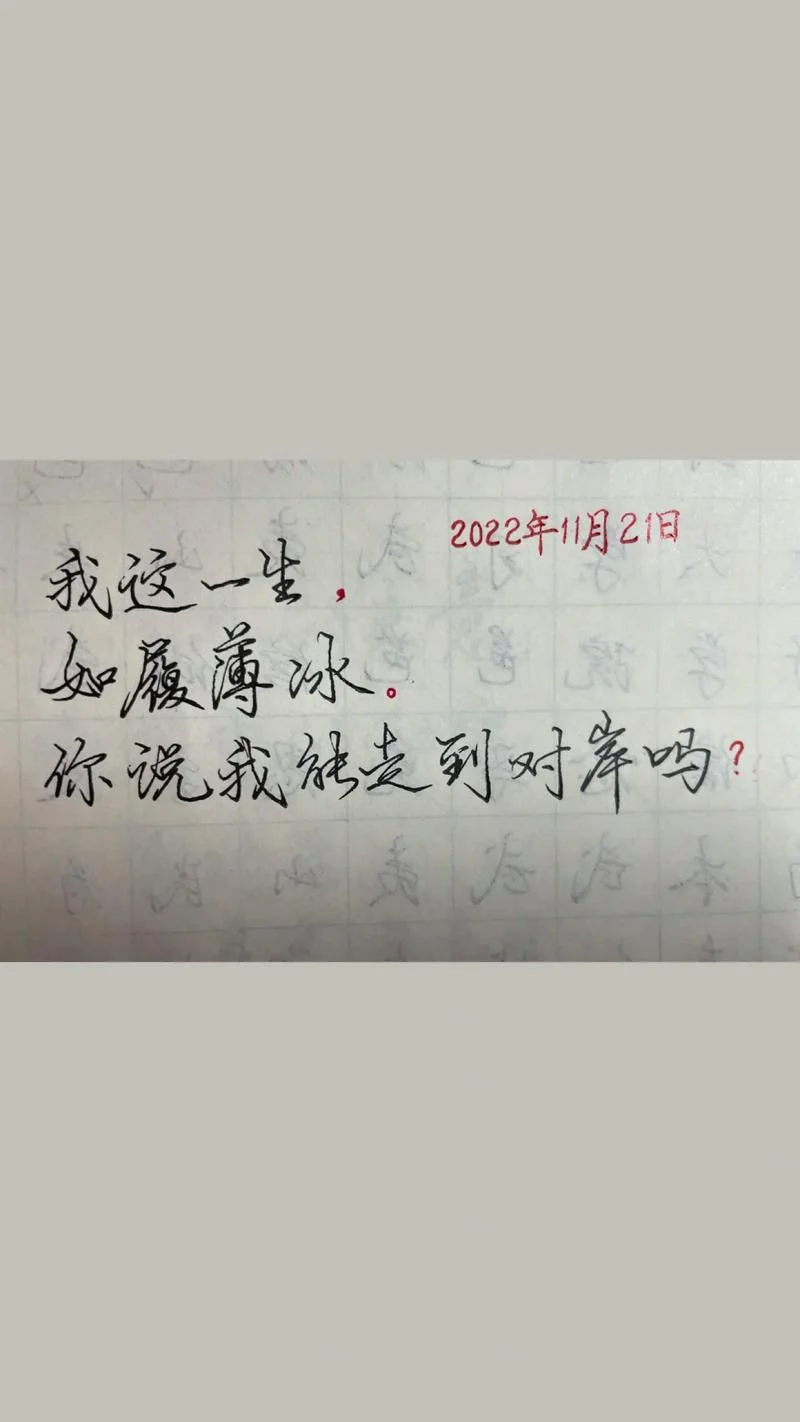 2022年11月21日
我这一生，
如履薄冰。
你说我能走到对岸吗？